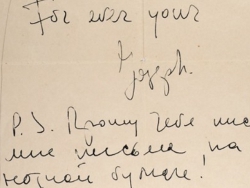 For ever your
Joseph.
P.S. Прошу тебя пис
мне письма, на
нотной бумаге!